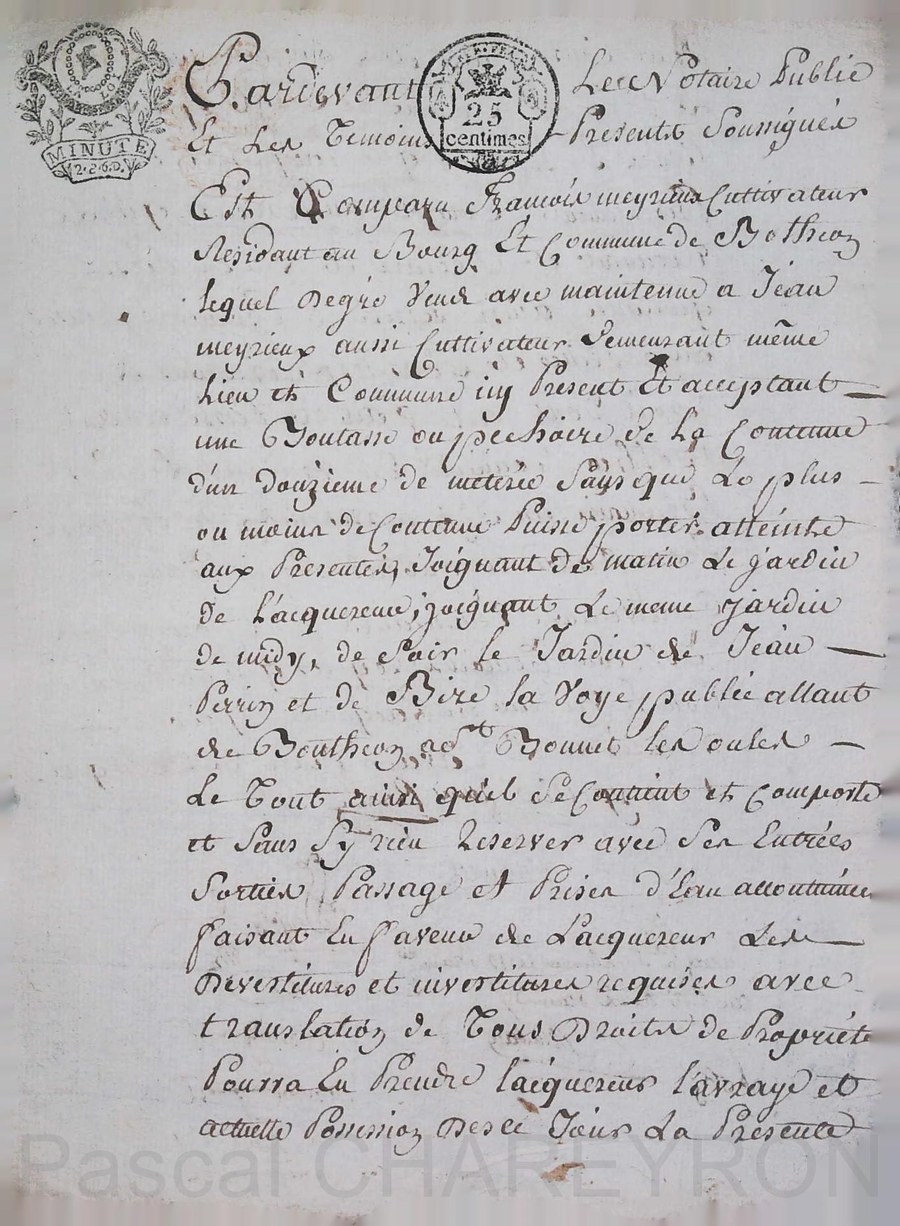 Pardevant Le Notaire Public
25
centimes
MINUTE
2.S.6.D.
Et Les Temoins Presents Soussignés
Est Comparu Francois meyrieux Cultivateur
Residant au Bourg Et Commune de Botheon
lequel Degré Vend avec maintenue a Jéan
meyrieux aussi Cultivateur Demeurant même
Lieu et Commune icy Présent Et acceptant
une Boutasse ou pechoire de La Contenue
d'un douzieme de méterée Sans que Le plus
ou moins de Contenue Puisse porter atteinte
aux Presentes, Joignant de matin Le jardin
de L'acquereur, joignant Le meme jardin
de midy, de Soir le Jardin de Jéan
Perrin et de Bize la Voye publee allant
de Boutheon a St Bonnet les oules
Le Tout ainsi quil Se Contient et Comporte
et Sans Sy rien Reserver avec Ses Entrées
Sorties Passage et Prises d'Eau accoutumées
faisant En faveur de L'acquereur Les
Devertitures et invertitures requises avec
translation de Tous Droits de Propriété
Pourra En Prendre l'acquereur la vraye et
actuelle Possession Desce Jour La Presente
Pascal CHAREYRON